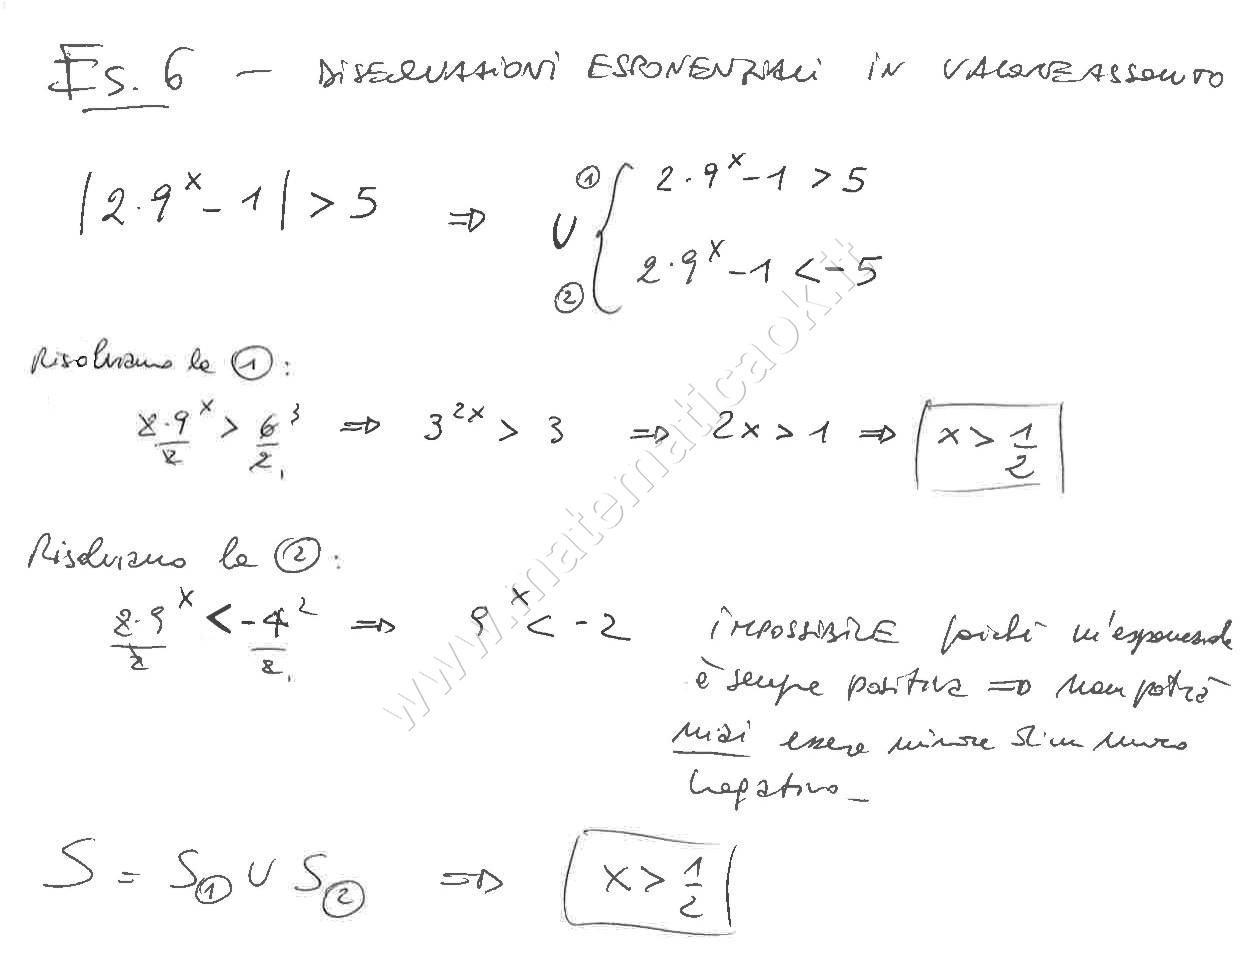 Es. 6 — DISEQUAZIONI ESPONENZIALI IN VALORE ASSOLUTO
|2·9^x - 1| > 5 ⇒ U { ① 2·9^x - 1 > 5
② 2·9^x - 1 < -5
Risolviamo la ①:
2·9^x/2 > 6^3/2_1 ⇒ 3^2x > 3 ⇒ 2x > 1 ⇒ x > 1/2
Risolviamo la ②:
2·9^x/2 < -4^2/2_1 ⇒ 9^x < -2 IMPOSSIBILE poiché un'esponenziale
è sempre positiva ⇒ non potrà
mai essere minore di un numero
negativo_
S = S① U S② ⇒ x > 1/2
www.matematicaok.it